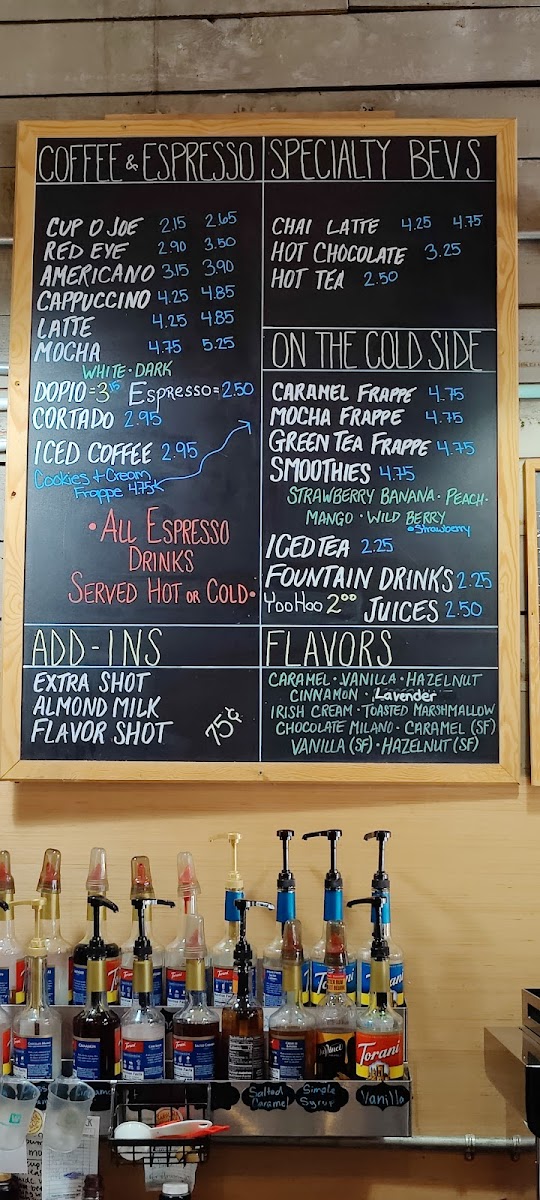 COFFEE & ESPRESSO
CUP O JOE 2.15 2.65
RED EYE 2.90 3.50
AMERICANO 3.15 3.90
CAPPUCCINO 4.25 4.85
LATTE 4.25 4.85
MOCHA 4.75 5.25
WHITE · DARK
DOPIO = 3.15 Espresso = 2.50
CORTADO 2.95
ICED COFFEE 2.95
Cookies + Cream
Frappe 4.75
• ALL ESPRESSO
DRINKS
SERVED HOT OR COLD •
SPECIALTY BEVS
CHAI LATTE 4.25 4.75
HOT CHOCOLATE 3.25
HOT TEA 2.50
ON THE COLD SIDE
CARAMEL FRAPPE 4.75
MOCHA FRAPPE 4.75
GREEN TEA FRAPPE 4.75
SMOOTHIES 4.75
STRAWBERRY BANANA · PEACH ·
MANGO · WILD BERRY
• Strawberry
ICED TEA 2.25
FOUNTAIN DRINKS 2.25
YooHoo 2.00 JUICES 2.50
ADD-INS
EXTRA SHOT
ALMOND MILK
FLAVOR SHOT
75¢
FLAVORS
CARAMEL · VANILLA · HAZELNUT
CINNAMON · Lavender
IRISH CREAM · TOASTED MARSHMALLOW
CHOCOLATE MILANO · CARAMEL (SF)
VANILLA (SF) · HAZELNUT (SF)
Torani
Torani
Torani
DaVinci
Torani
Salted
Caramel
Simple
Syrup
Vanilla